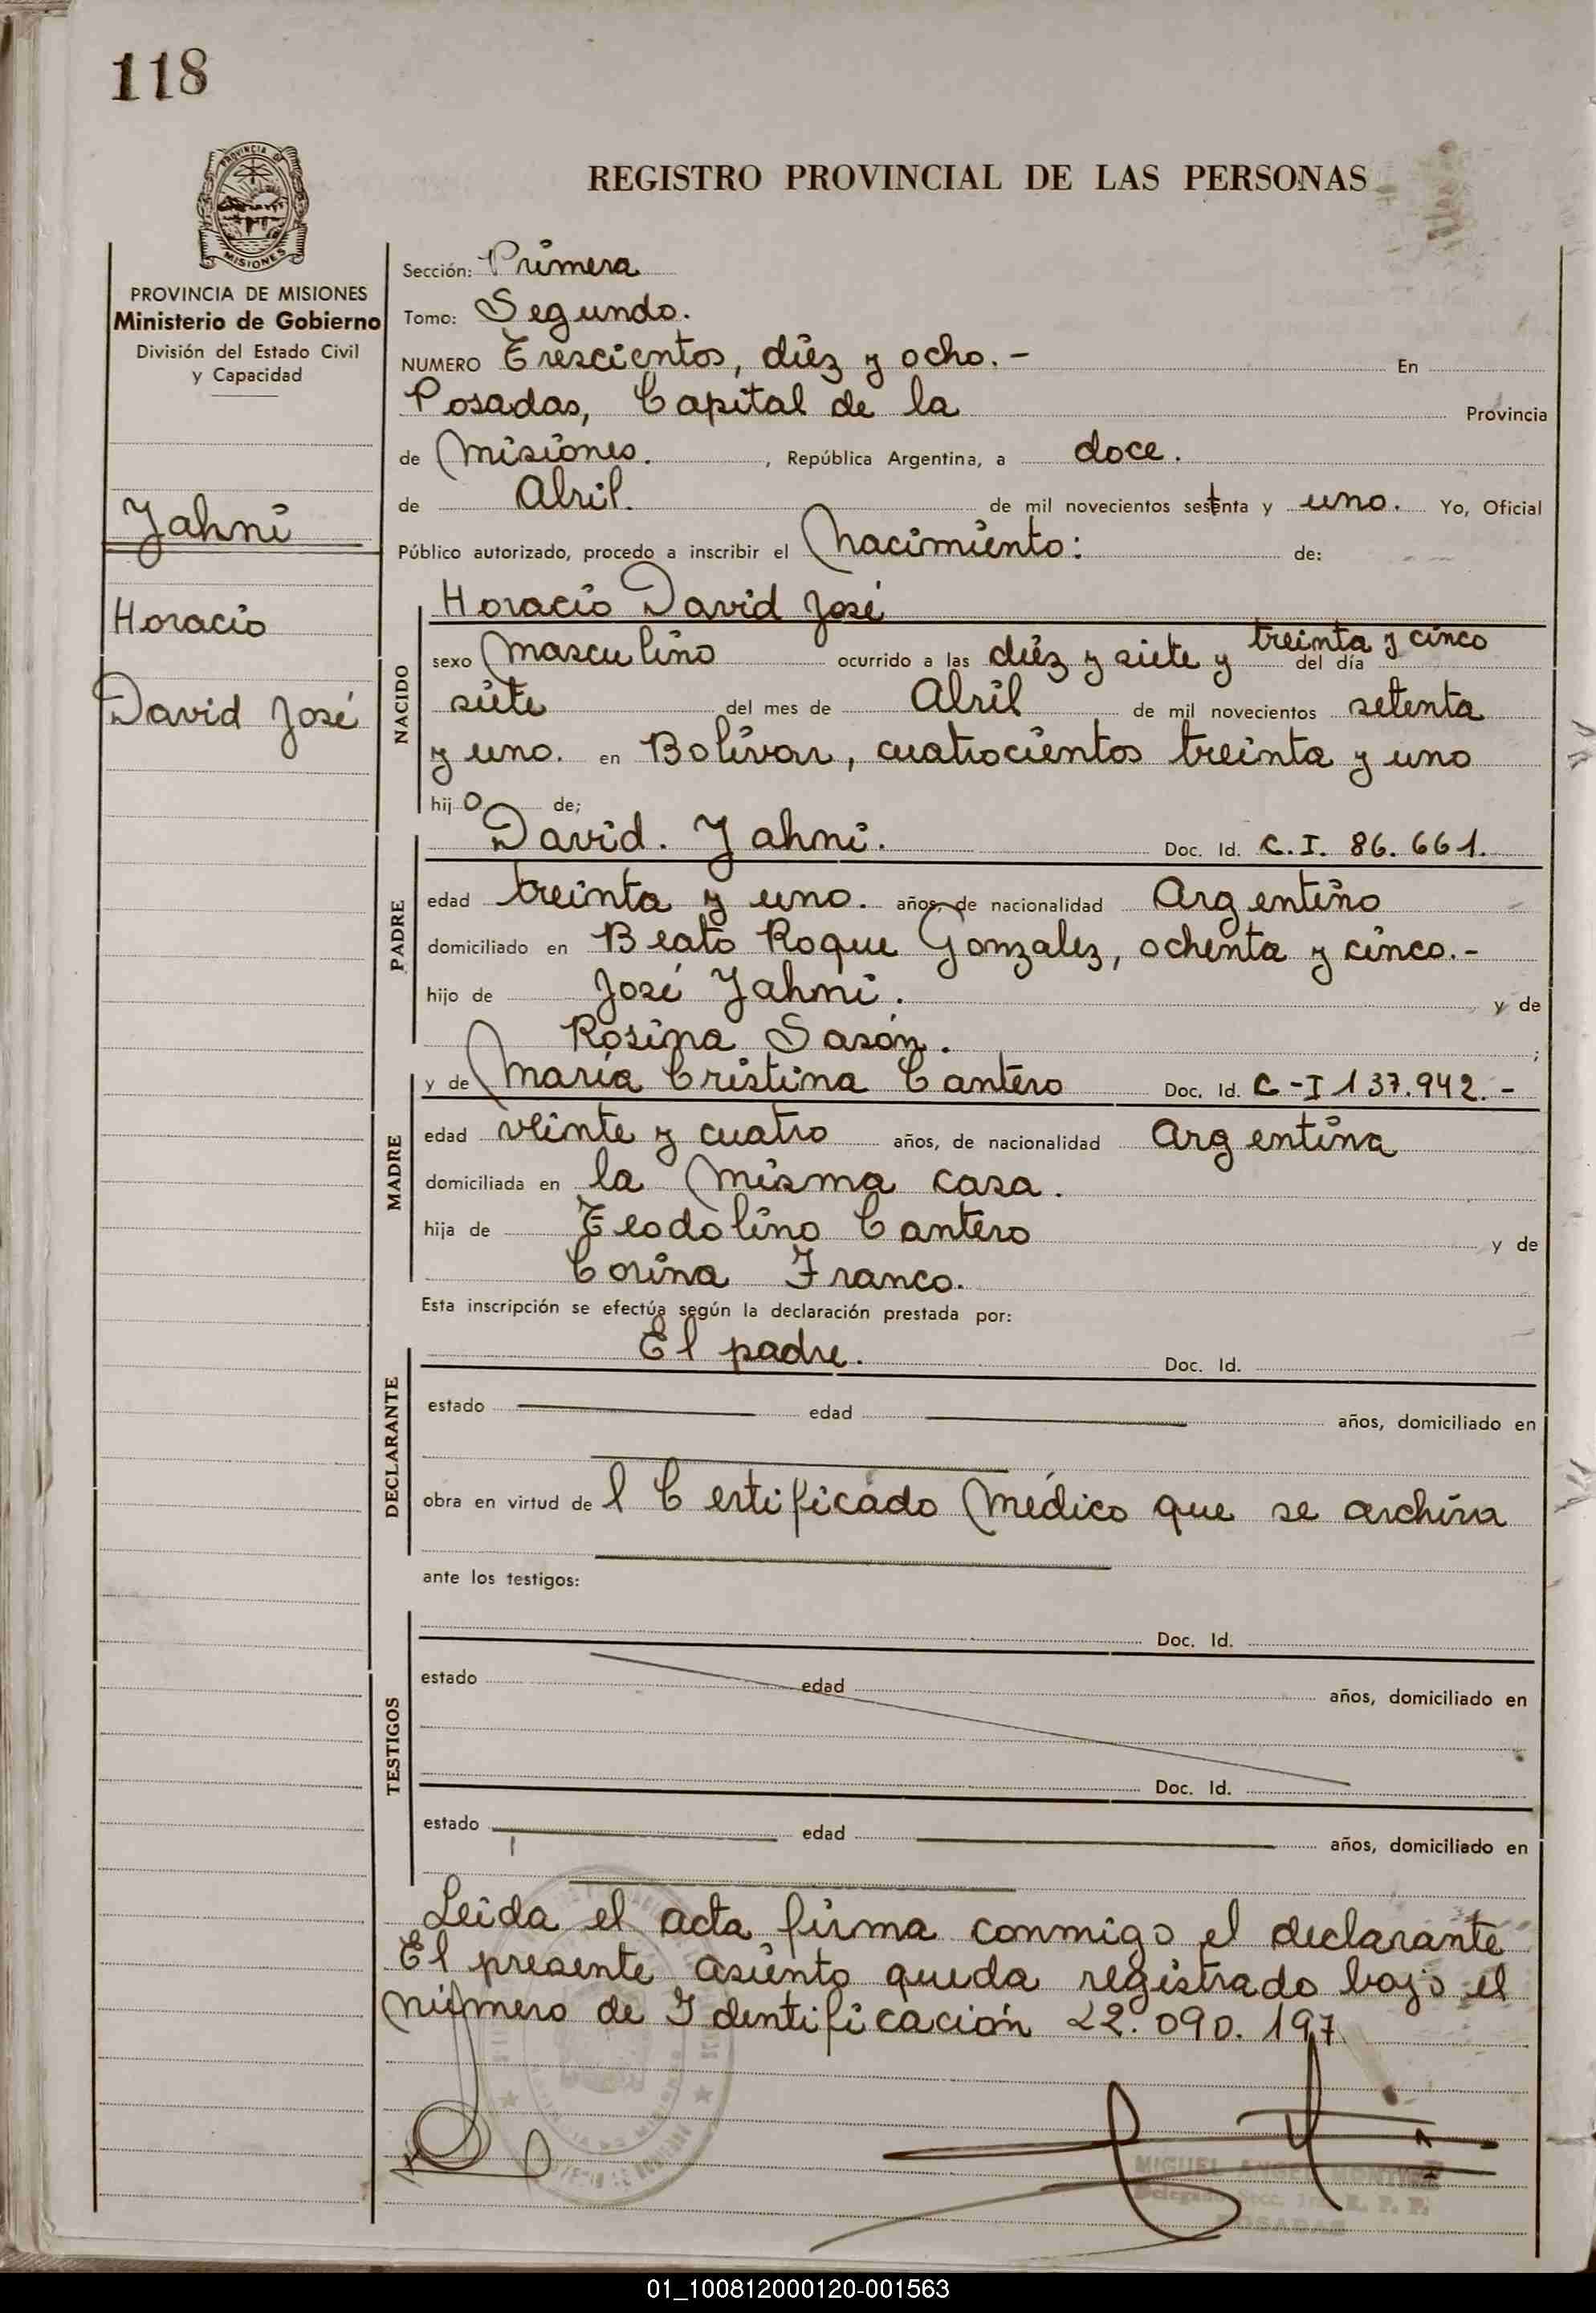 118
PROVINCIA DE
MISIONES
REGISTRO PROVINCIAL DE LAS PERSONAS
PROVINCIA DE MISIONES
Ministerio de Gobierno
División del Estado Civil
y Capacidad
Jahni
Horacio
David José
Sección: Primera
Tomo: Segundo.
NUMERO Trescientos, diéz y ocho. - En
Posadas, Capital de la Provincia
de Misiones. , República Argentina, a doce.
de Abril. de mil novecientos setenta y uno. Yo, Oficial
Público autorizado, procedo a inscribir el Nacimiento: de:
NACIDO
Horacio David José
sexo masculino ocurrido a las diéz y siete y treinta y cinco del día
siete del mes de Abril de mil novecientos setenta
y uno. en Bolívar, cuatrocientos treinta y uno
hijo de;
PADRE
David. Jahni. Doc. Id. C.I. 86.661.
edad treinta y uno. años, de nacionalidad Argentino
domiciliado en Beato Roque Gonzalez, ochenta y cinco.-
hijo de José Jahni. y de
Rosina Sasón. ;
MADRE
y de María Cristina Cantero Doc. Id. C-I 137.942.-
edad veinte y cuatro años, de nacionalidad Argentina
domiciliada en la misma casa.
hija de Teodolino Cantero y de
Corina Franco.
Esta inscripción se efectúa según la declaración prestada por:
DECLARANTE
El padre. Doc. Id.
estado edad años, domiciliado en
obra en virtud del Certificado Médico que se archiva
ante los testigos:
TESTIGOS
Doc. Id.
estado edad años, domiciliado en
Doc. Id.
estado edad años, domiciliado en
Leida el acta firma conmigo el declarante
El presente asiento queda registrado bajo el
número de Identificación 22.090.197
MIGUEL ANGEL
Delegado Secc. 1ra. R. P. P.
POSADAS
01_100812000120-001563